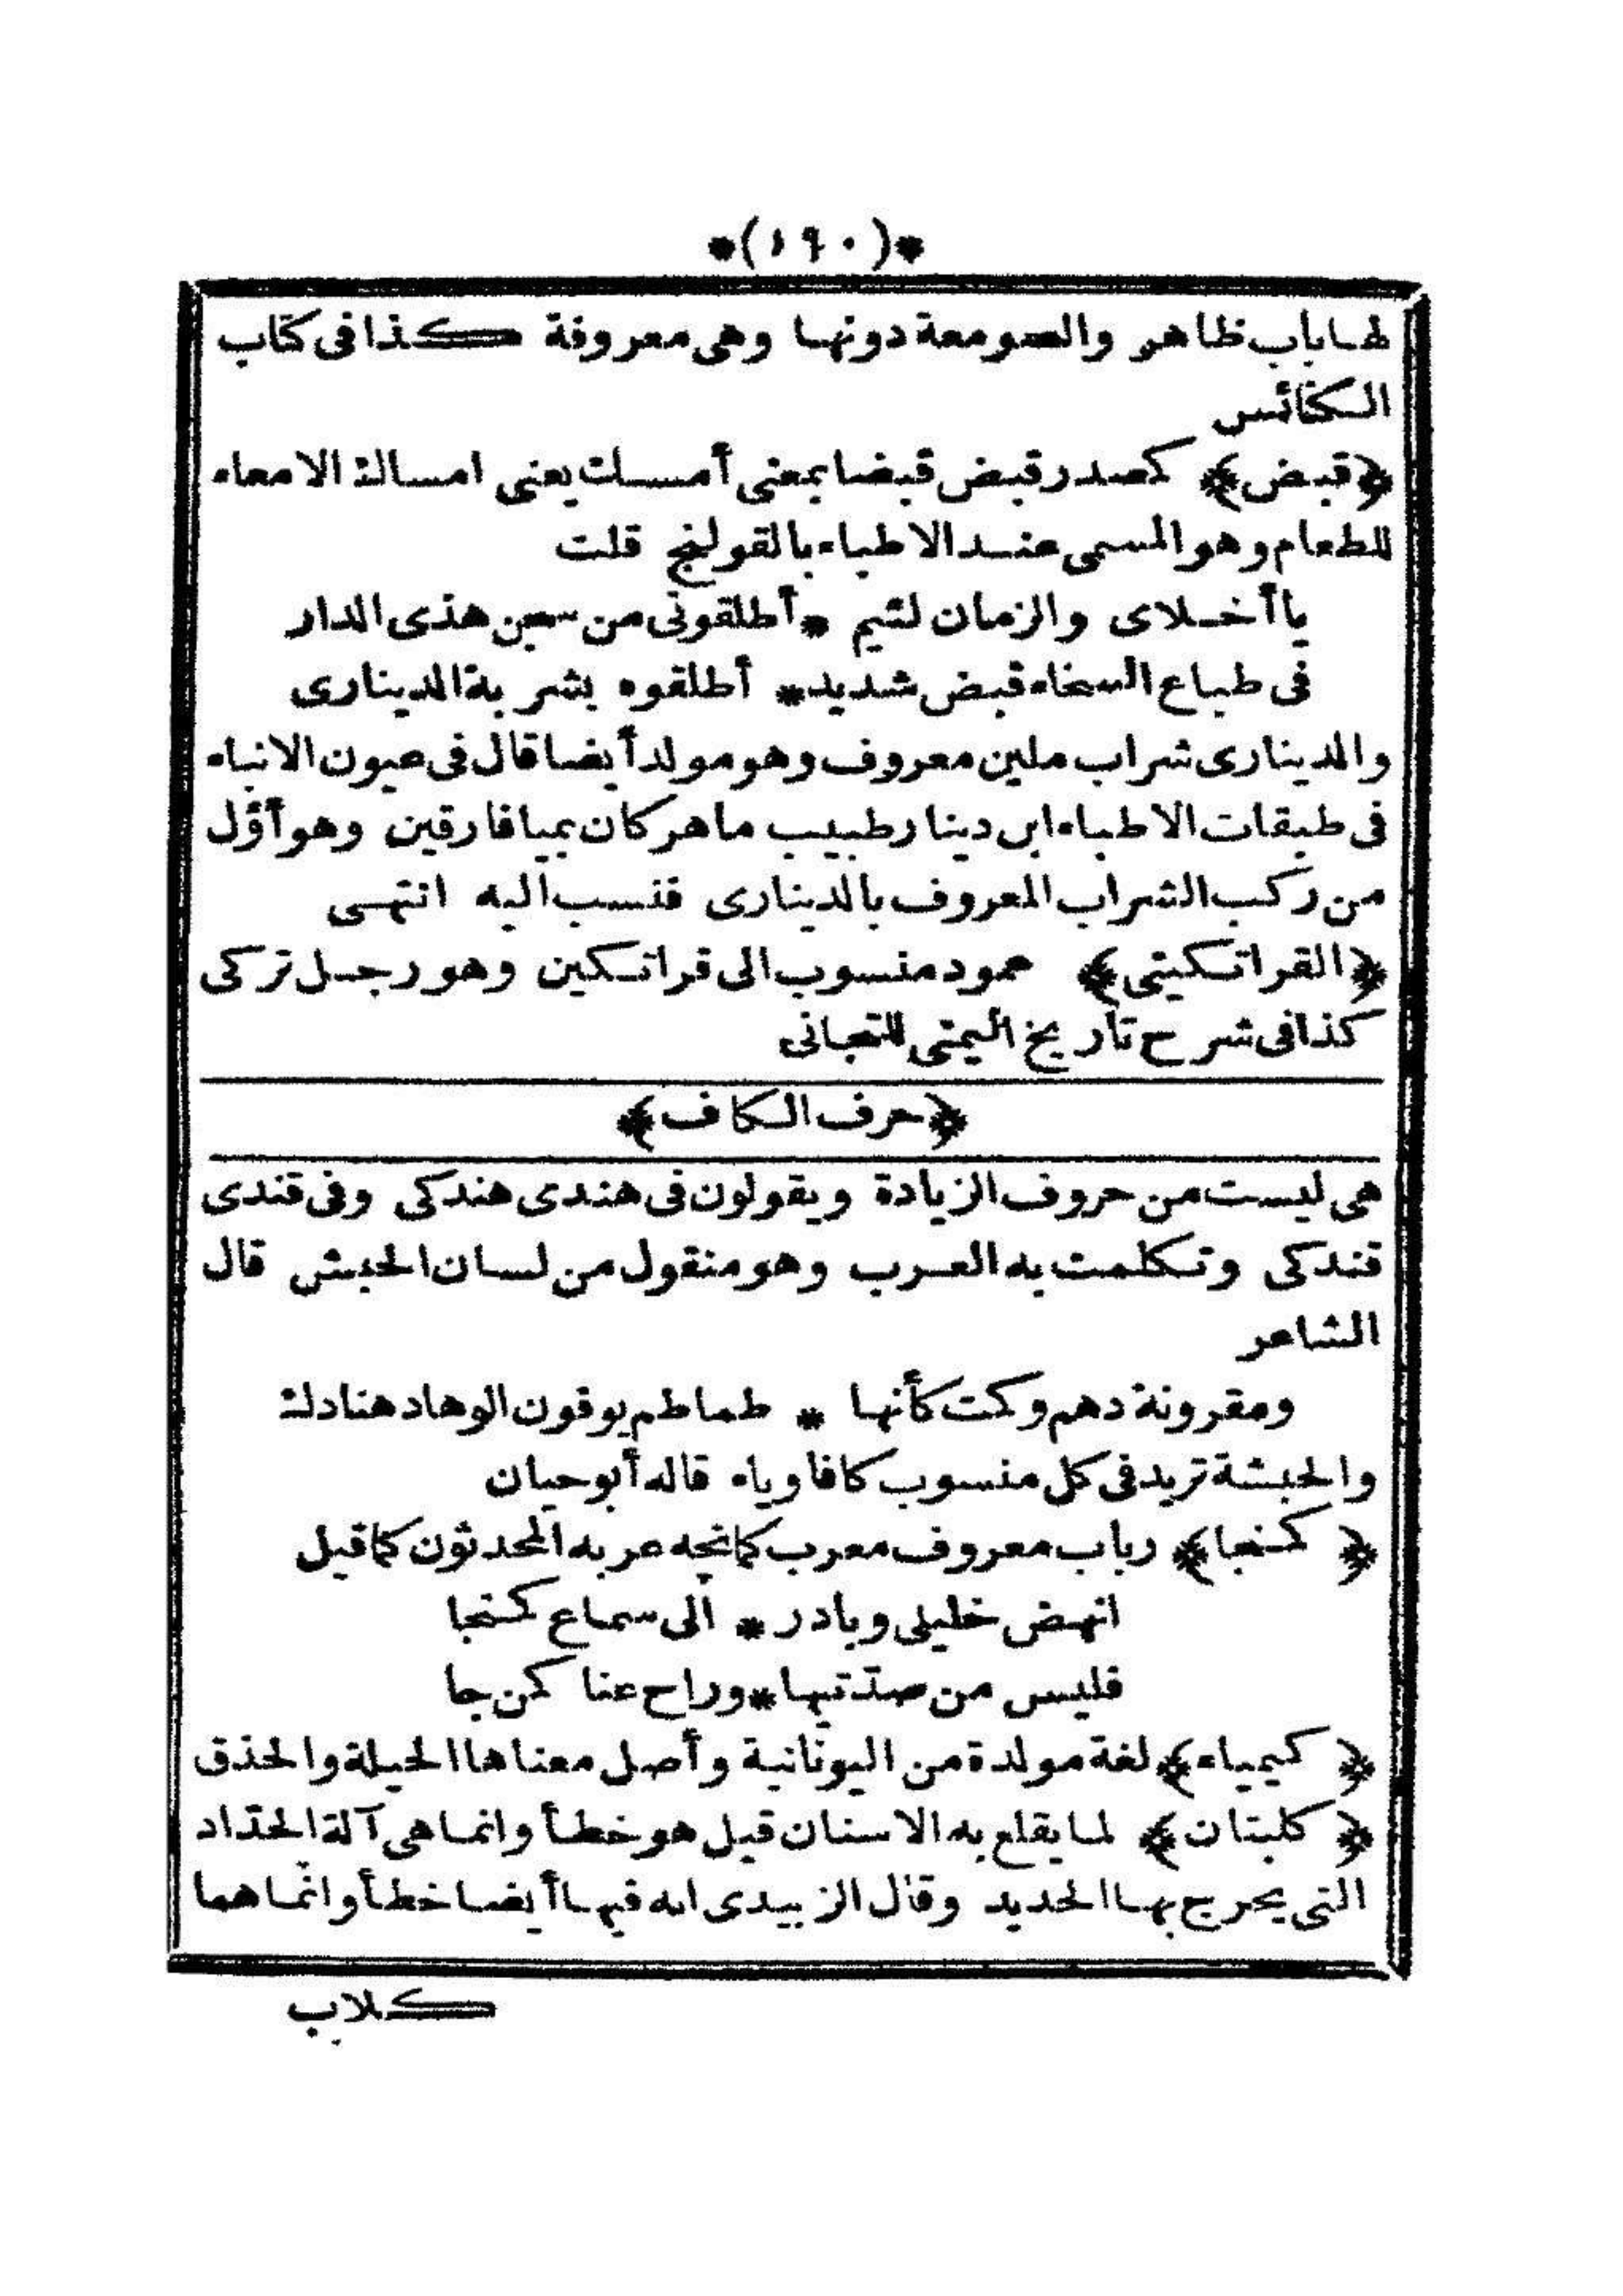 *(١٩٠)*
لها باب ظاهر والصومعة دونها وهى معروفة كذا فى كتاب
الكنائس
﴿قبض﴾ كصدر قبض قبضا بمعنى أمسك يعنى امساك الامعاء
للطعام وهو المسمى عند الاطباء بالقولنج قلت
يا أخلاى والزمان لئيم * أطلقونى من سجن هذى الدار
فى طباع السخاء قبض شديد * أطلقوه بشربة الدينارى
والدينارى شراب ملين معروف وهو مولد أيضا قال فى عيون الانباء
فى طبقات الاطباء ابن دينار طبيب ماهر كان بميافارقين وهو أوّل
من ركب الشراب المعروف بالدينارى فنسب اليه انتهى
﴿القراتكينى﴾ عمود منسوب الى قراتكين وهو رجل تركى
كذا فى شرح تاريخ اليمنى للنجانى
﴿حرف الكاف﴾
هى ليست من حروف الزيادة ويقولون فى هندى هندكى وفى قندى
قندكى وتكلمت به العرب وهو منقول من لسان الحبش قال
الشاعر
ومقرونة دهم وكمت كأنها * طماطم يوفون الوهاد هنادك
والحبشة تريد فى كل منسوب كافا وياء قاله أبو حيان
﴿كمنجا﴾ رباب معروف معرب كمانچه عربه المحدثون كما قيل
انهض خليلى وبادر * الى سماع كمنجا
فليس من صدّ تيها * وراح عنا كمن جا
﴿كيمياء﴾ لغة مولدة من اليونانية وأصل معناها الحيلة والحذق
﴿كلبتان﴾ لما يقلع به الاسنان قيل هو خطأ وانما هى آلة الحدّاد
التى يخرج بها الحديد وقال الزبيدى انه فيها أيضا خطأ وانما هما
كلاب